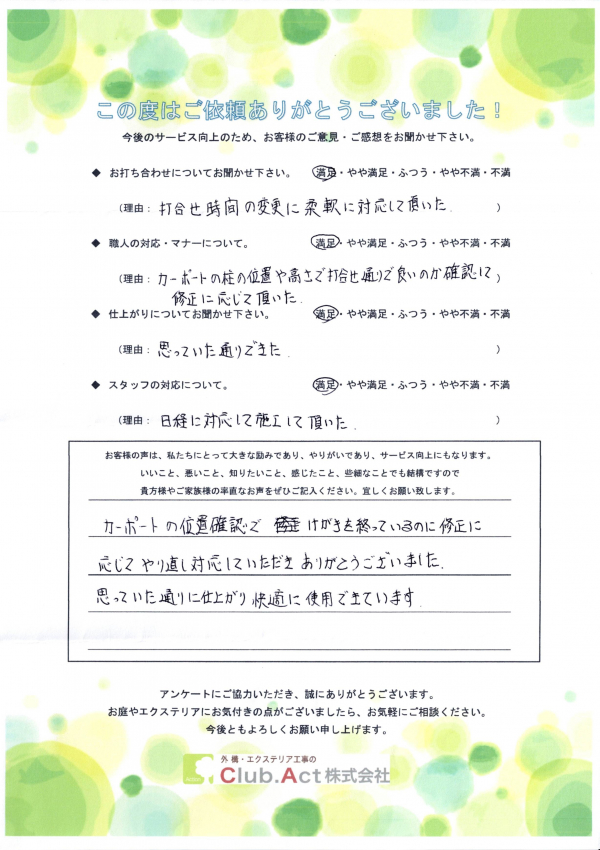 この度はご依頼ありがとうございました！
今後のサービス向上のため、お客様のご意見・ご感想をお聞かせ下さい。
◆ お打ち合わせについてお聞かせ下さい。 満足・やや満足・ふつう・やや不満・不満
(理由： 打合せ時間の変更に柔軟に対応して頂いた. )
◆ 職人の対応・マナーについて。 満足・やや満足・ふつう・やや不満・不満
(理由： カーポートの柱の位置や高さで打合せ通りで良いのか確認して )
修正に応じて頂いた.
◆ 仕上がりについてお聞かせ下さい。 満足・やや満足・ふつう・やや不満・不満
(理由： 思っていた通りできた. )
◆ スタッフの対応について。 満足・やや満足・ふつう・やや不満・不満
(理由： 日程に対応して施工して頂いた. )
お客様の声は、私たちにとって大きな励みであり、やりがいであり、サービス向上にもなります。
いいこと、悪いこと、知りたいこと、感じたこと、些細なことでも結構ですので
貴方様やご家族様の率直なお声をぜひご記入ください。宜しくお願い致します。
カーポートの位置確認で けがきを終っているのに修正に
応じて やり直し対応していただき ありがとうございました.
思っていた通りに仕上がり 快適に使用できています.
アンケートにご協力いただき、誠にありがとうございます。
お庭やエクステリアにお気付きの点がございましたら、お気軽にご相談ください。
今後ともよろしくお願い申し上げます。
外構・エクステリア工事の
Club.Act株式会社